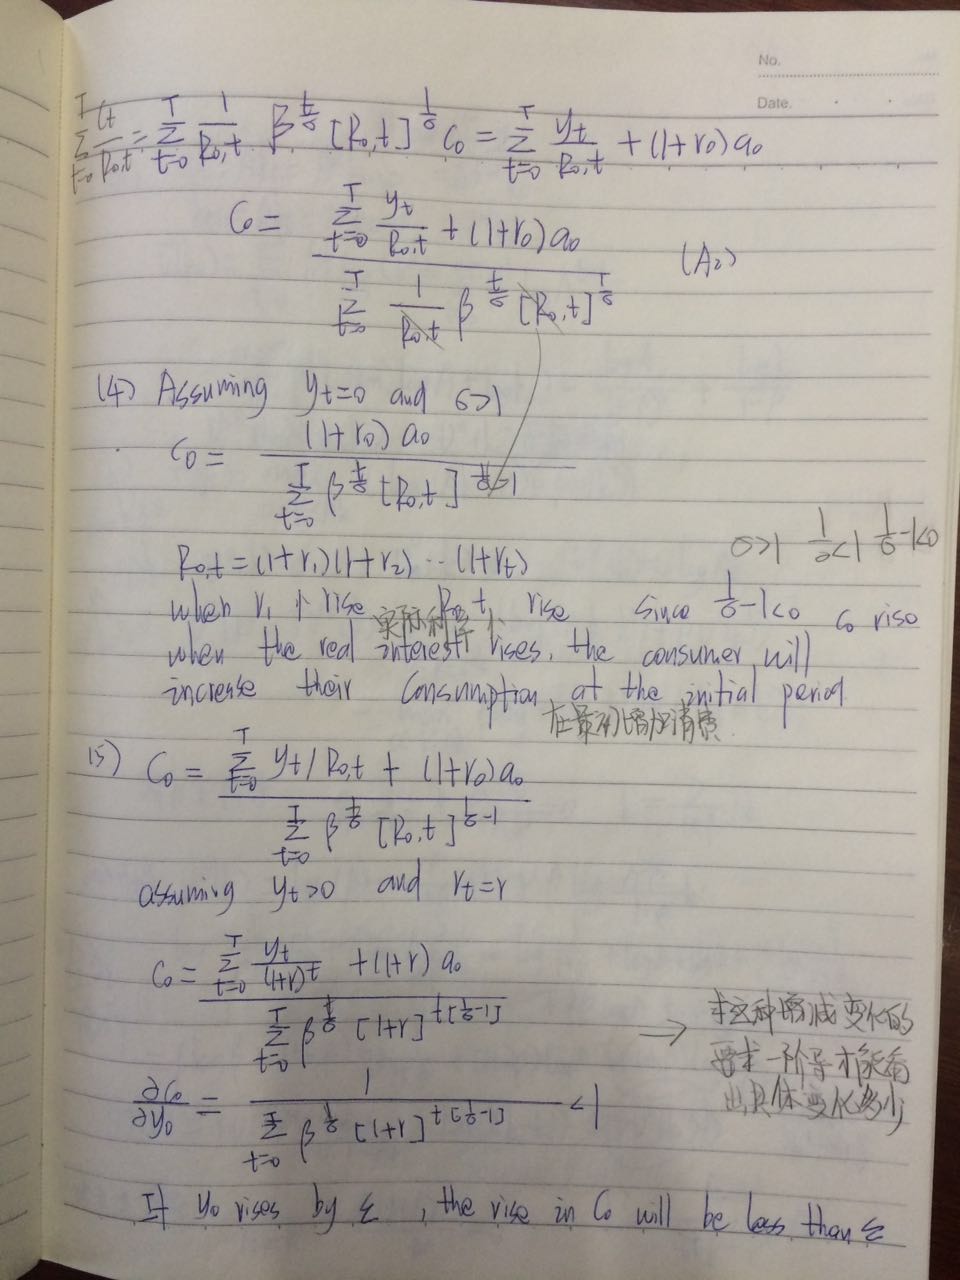 No.
Date.
T∑t=0 Ct/R0,t = T∑t=0 1/R0,t β^(t/σ) [R0,t]^(1/σ) C0 = T∑t=0 yt/R0,t + (1+r0)a0
C0 = (T∑t=0 yt/R0,t + (1+r0)a0) / (T∑t=0 1/R0,t β^(t/σ) [R0,t]^(1/σ)) (A2)
(4) Assuming yt=0 and σ>1
C0 = (1+r0)a0 / (T∑t=0 β^(t/σ) [R0,t]^(1/σ-1))
σ>1 1/σ<1 1/σ-1<0
R0,t = (1+r1)(1+r2)···(1+rt)
when r1 ↑ rise R0,t rise since 1/σ-1<0 C0 rise
when the real interest rises, the consumer will
increase their consumption at the initial period
在最初增加消费
(5) C0 = (T∑t=0 yt/R0,t + (1+r0)a0) / (T∑t=0 β^(t/σ) [R0,t]^(1/σ-1))
assuming yt>0 and rt=r
C0 = (T∑t=0 yt/(1+r)^t + (1+r)a0) / (T∑t=0 β^(t/σ) [1+r]^(t[1/σ-1]))
→ 求这种增减变化的
要求一阶导才能看
出具体变化多少
∂C0/∂y0 = 1 / (T∑t=0 β^(t/σ) [1+r]^(t[1/σ-1])) <1
If y0 rises by ε, the rise in C0 will be less than ε